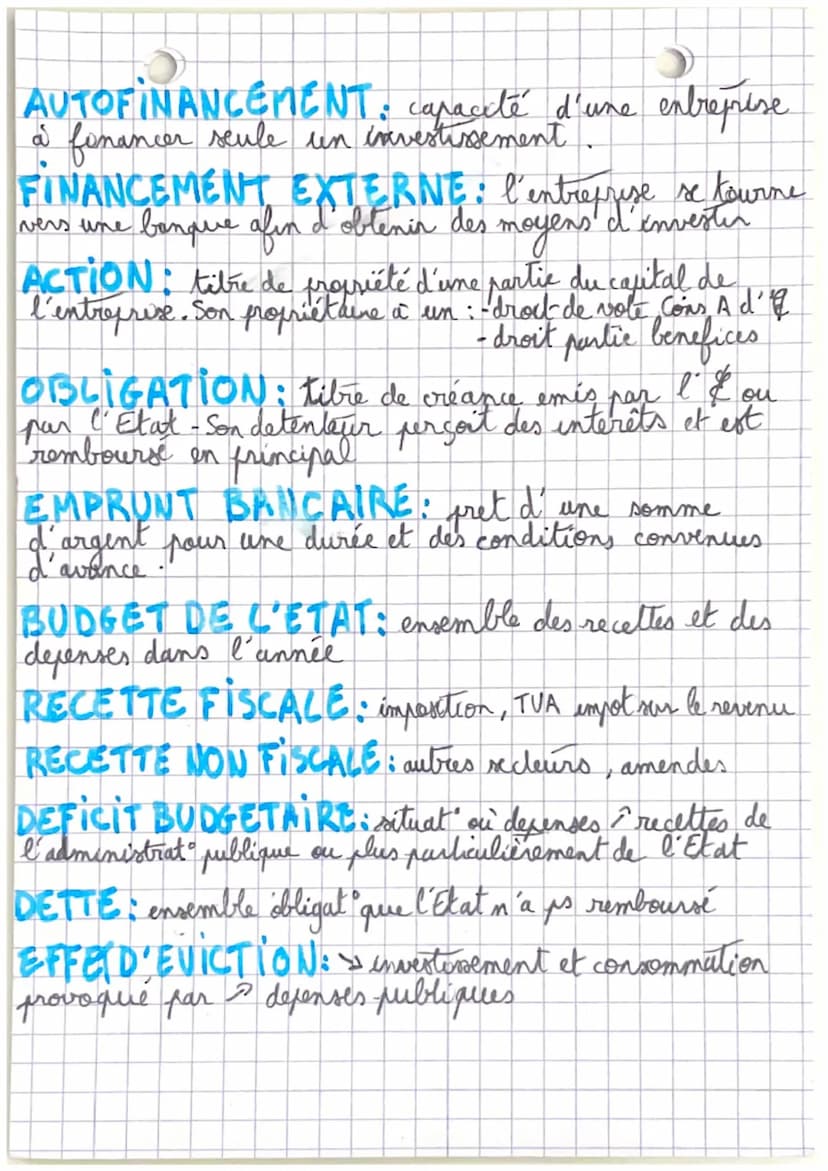 AUTOFINANCEMENT : capacité d'une entreprise
à financer seule un investissement .
FINANCEMENT EXTERNE : l'entreprise se tourne
vers une banque afin d'obtenir des moyens d'investir
ACTION : titre de propriété d'une partie du capital de
l'entreprise. Son propriétaire à un : - droit de vote Cons A d'E
- droit partie benefices
OBLIGATION : titre de créance emis par l'E ou
par l'Etat - Son detenteur perçoit des interêts et est
remboursé en principal
EMPRUNT BANCAIRE : pret d'une somme
d'argent pour une durée et des conditions convenues
d'avance .
BUDGET DE L'ETAT : ensemble des recettes et des
depenses dans l'année
RECETTE FISCALE : imposition, TVA impot sur le revenu
RECETTE NON FISCALE : autres secteurs , amendes
DEFICIT BUDGETAIRE : situat° où depenses ↗ recettes de
l'administrat° publique ou plus particulièrement de l'Etat
DETTE : ensemble obligat° que l'Etat n'a ps remboursé
EFFET D'EVICTION : ↘ investissement et consommation
provoqué par ↗ depenses publiques